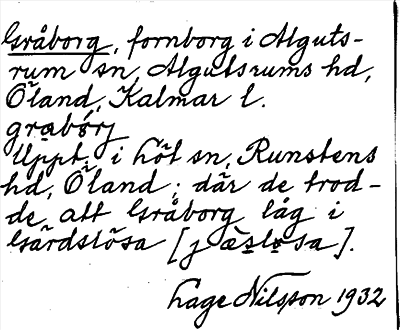 Gråborg, fornborg i Alguts-
rum sn, Algutsrums hd,
Öland, Kalmar l.
grabårj
Uppt. i Löt sn, Runstens
hd, Öland; där de trod-
de att Gråborg låg i
Gärdslösa [jæslosa].
Lage Nilsson 1932